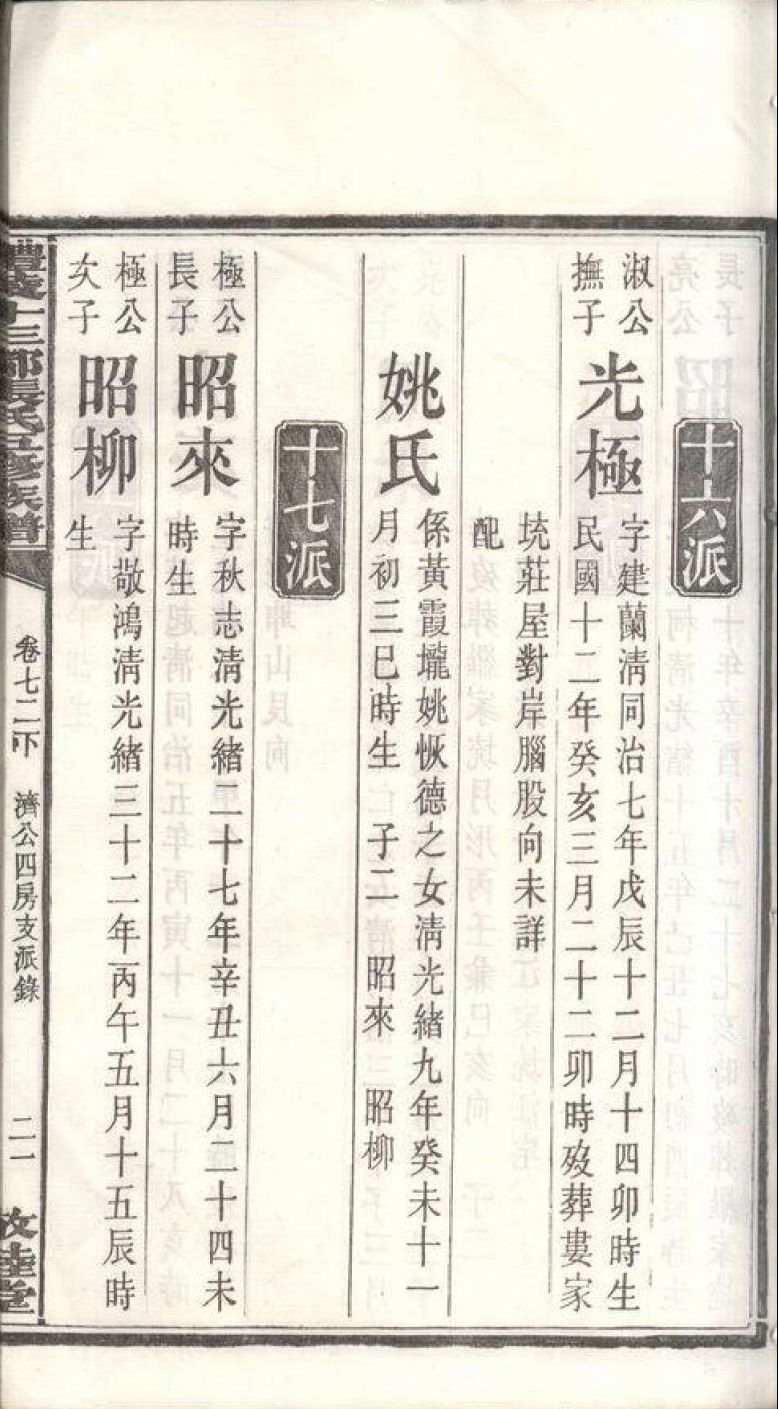 十六派
淑公
撫子
光極
字建蘭清同治七年戊辰十二月十四卯時生
民國十二年癸亥三月二十二卯時歿葬婁家
垸莊屋對岸腦股向未詳
配
姚氏
係黃霞壠姚恢德之女清光緒九年癸未十一
月初三巳時生 子二 昭來 昭柳
十七派
極公
長子
昭來
字秋志清光緒二十七年辛丑六月二十四未
時生
極公
次子
昭柳
字敬鴻清光緒三十二年丙午五月十五辰時
生
醴陵十三都張氏五修族譜
卷七二下 濟公四房支派錄 二一
敦睦堂